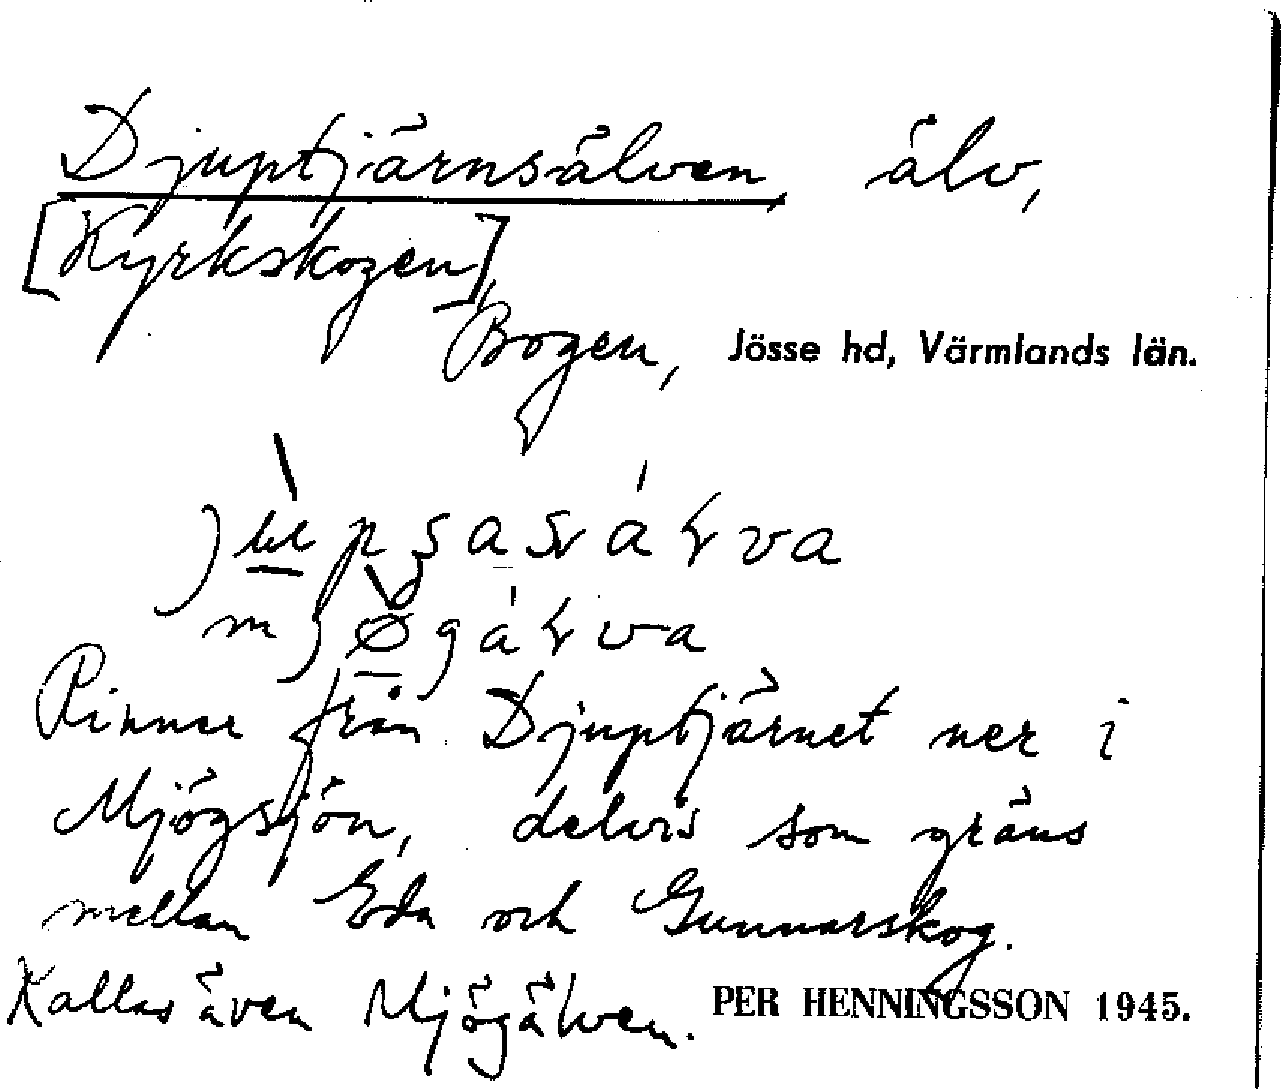 Djuptjärnsälven, älv,
[Kyrkskogen],
Bogen, Jösse hd, Värmlands län.
Rinner från Djuptjärnet ner i
Mjögsjön, delvis som gräns
mellan Eda och Gunnarskog.
Kallas även Mjögälven. PER HENNINGSSON 1945.